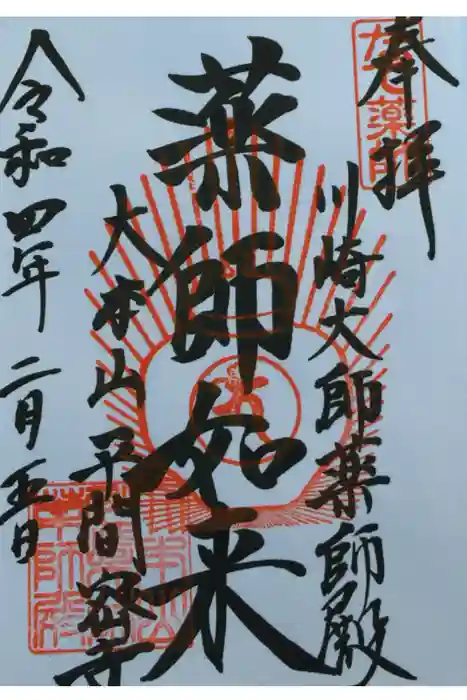 奉拝
川崎大師薬師殿
薬師如来
大本山平間密寺
令和四年二月五日